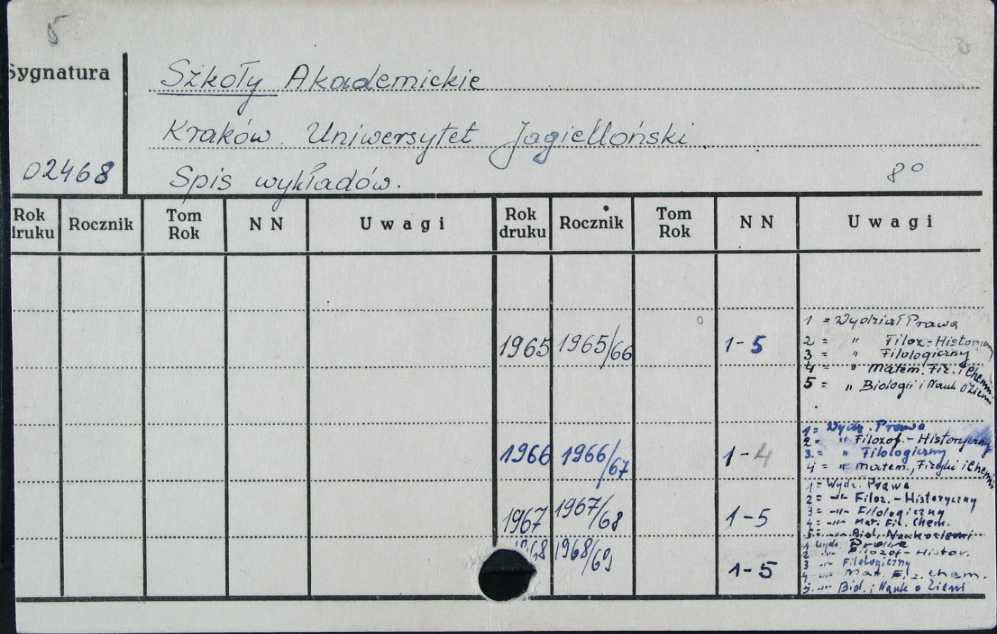 5
Sygnatura
Szkoły Akademickie
Kraków Uniwersytet Jagielloński.
02468
Spis wykładów.
8°
Rok druku Rocznik Tom Rok NN Uwagi Rok druku Rocznik Tom Rok NN Uwagi
1965 1965/66 1-5
1 = Wydział Prawa
2 = " Filoz-Historycz
3 = " Filologiczny
4 = " Matem. Fiz. i Chemii
5 = " Biologii i Nauk o Ziemi
1966 1966/67 1-4
1 = Wydz. Prawa
2 = " Filozof.-Historyczny
3 = " Filologiczny
4 = " Matem., Fizyki i Chemii
1967 1967/68 1-5
1 = Wydz. Prawa
2 = -"- Filoz.-Historyczny
3 = -"- Filologiczny
4 = -"- Mat. Fiz. Chem.
5 = -"- Biol. Nauk o Ziemi
1968 1968/69 1-5
1 Wydz. Prawa
2 -"- Filozof-Histor.
3 -"- Filologiczny
4 -"- Mat. Fiz. Chem.
5. -"- Biol. i Nauk o Ziemi